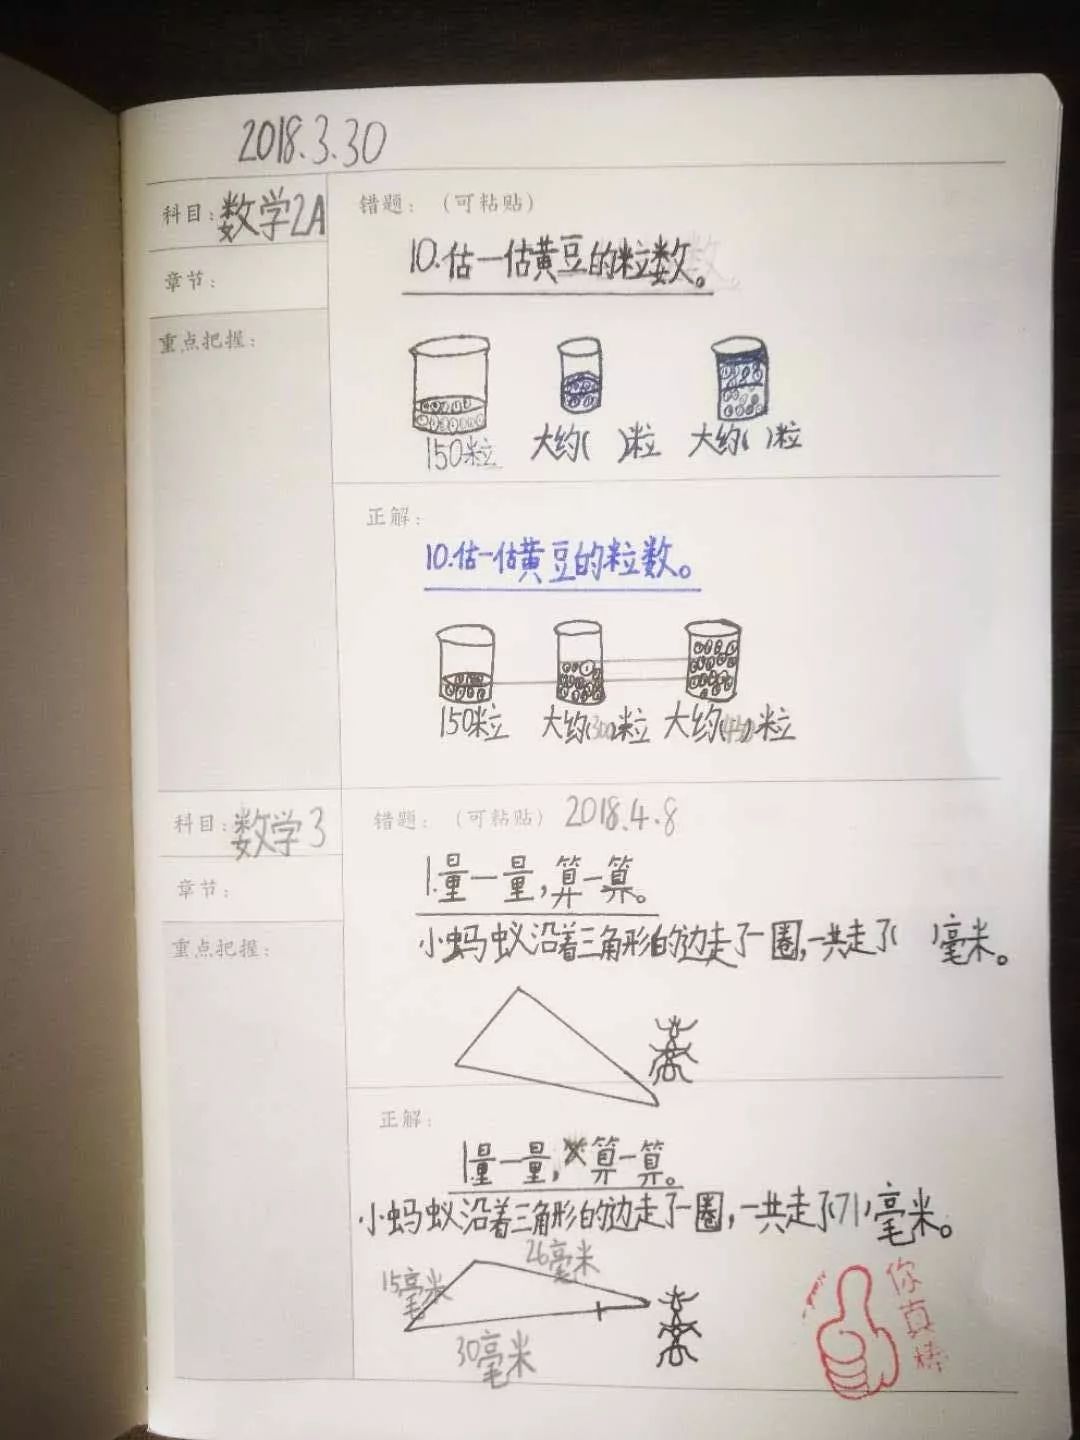 2018.3.30
科目：数学2A
错题：（可粘贴）
章节：
重点把握：
10.估一估黄豆的粒数。
150粒 大约( )粒 大约( )粒
正解：
10.估一估黄豆的粒数。
150粒 大约(300)粒 大约(450)粒
科目：数学3
错题：（可粘贴） 2018.4.8
章节：
重点把握：
1.量一量，算一算。
小蚂蚁沿着三角形的边走了一圈，一共走了( )毫米。
正解：
1.量一量，算一算。
小蚂蚁沿着三角形的边走了一圈，一共走了(71)毫米。
15毫米
26毫米
30毫米
你真棒